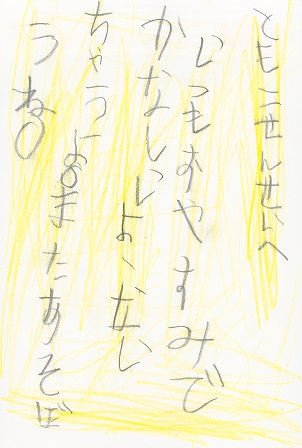 ともこせんせいへ
いつもおやすみで
かなしいよ、ない
ちゃうよまたあそぼ
うね